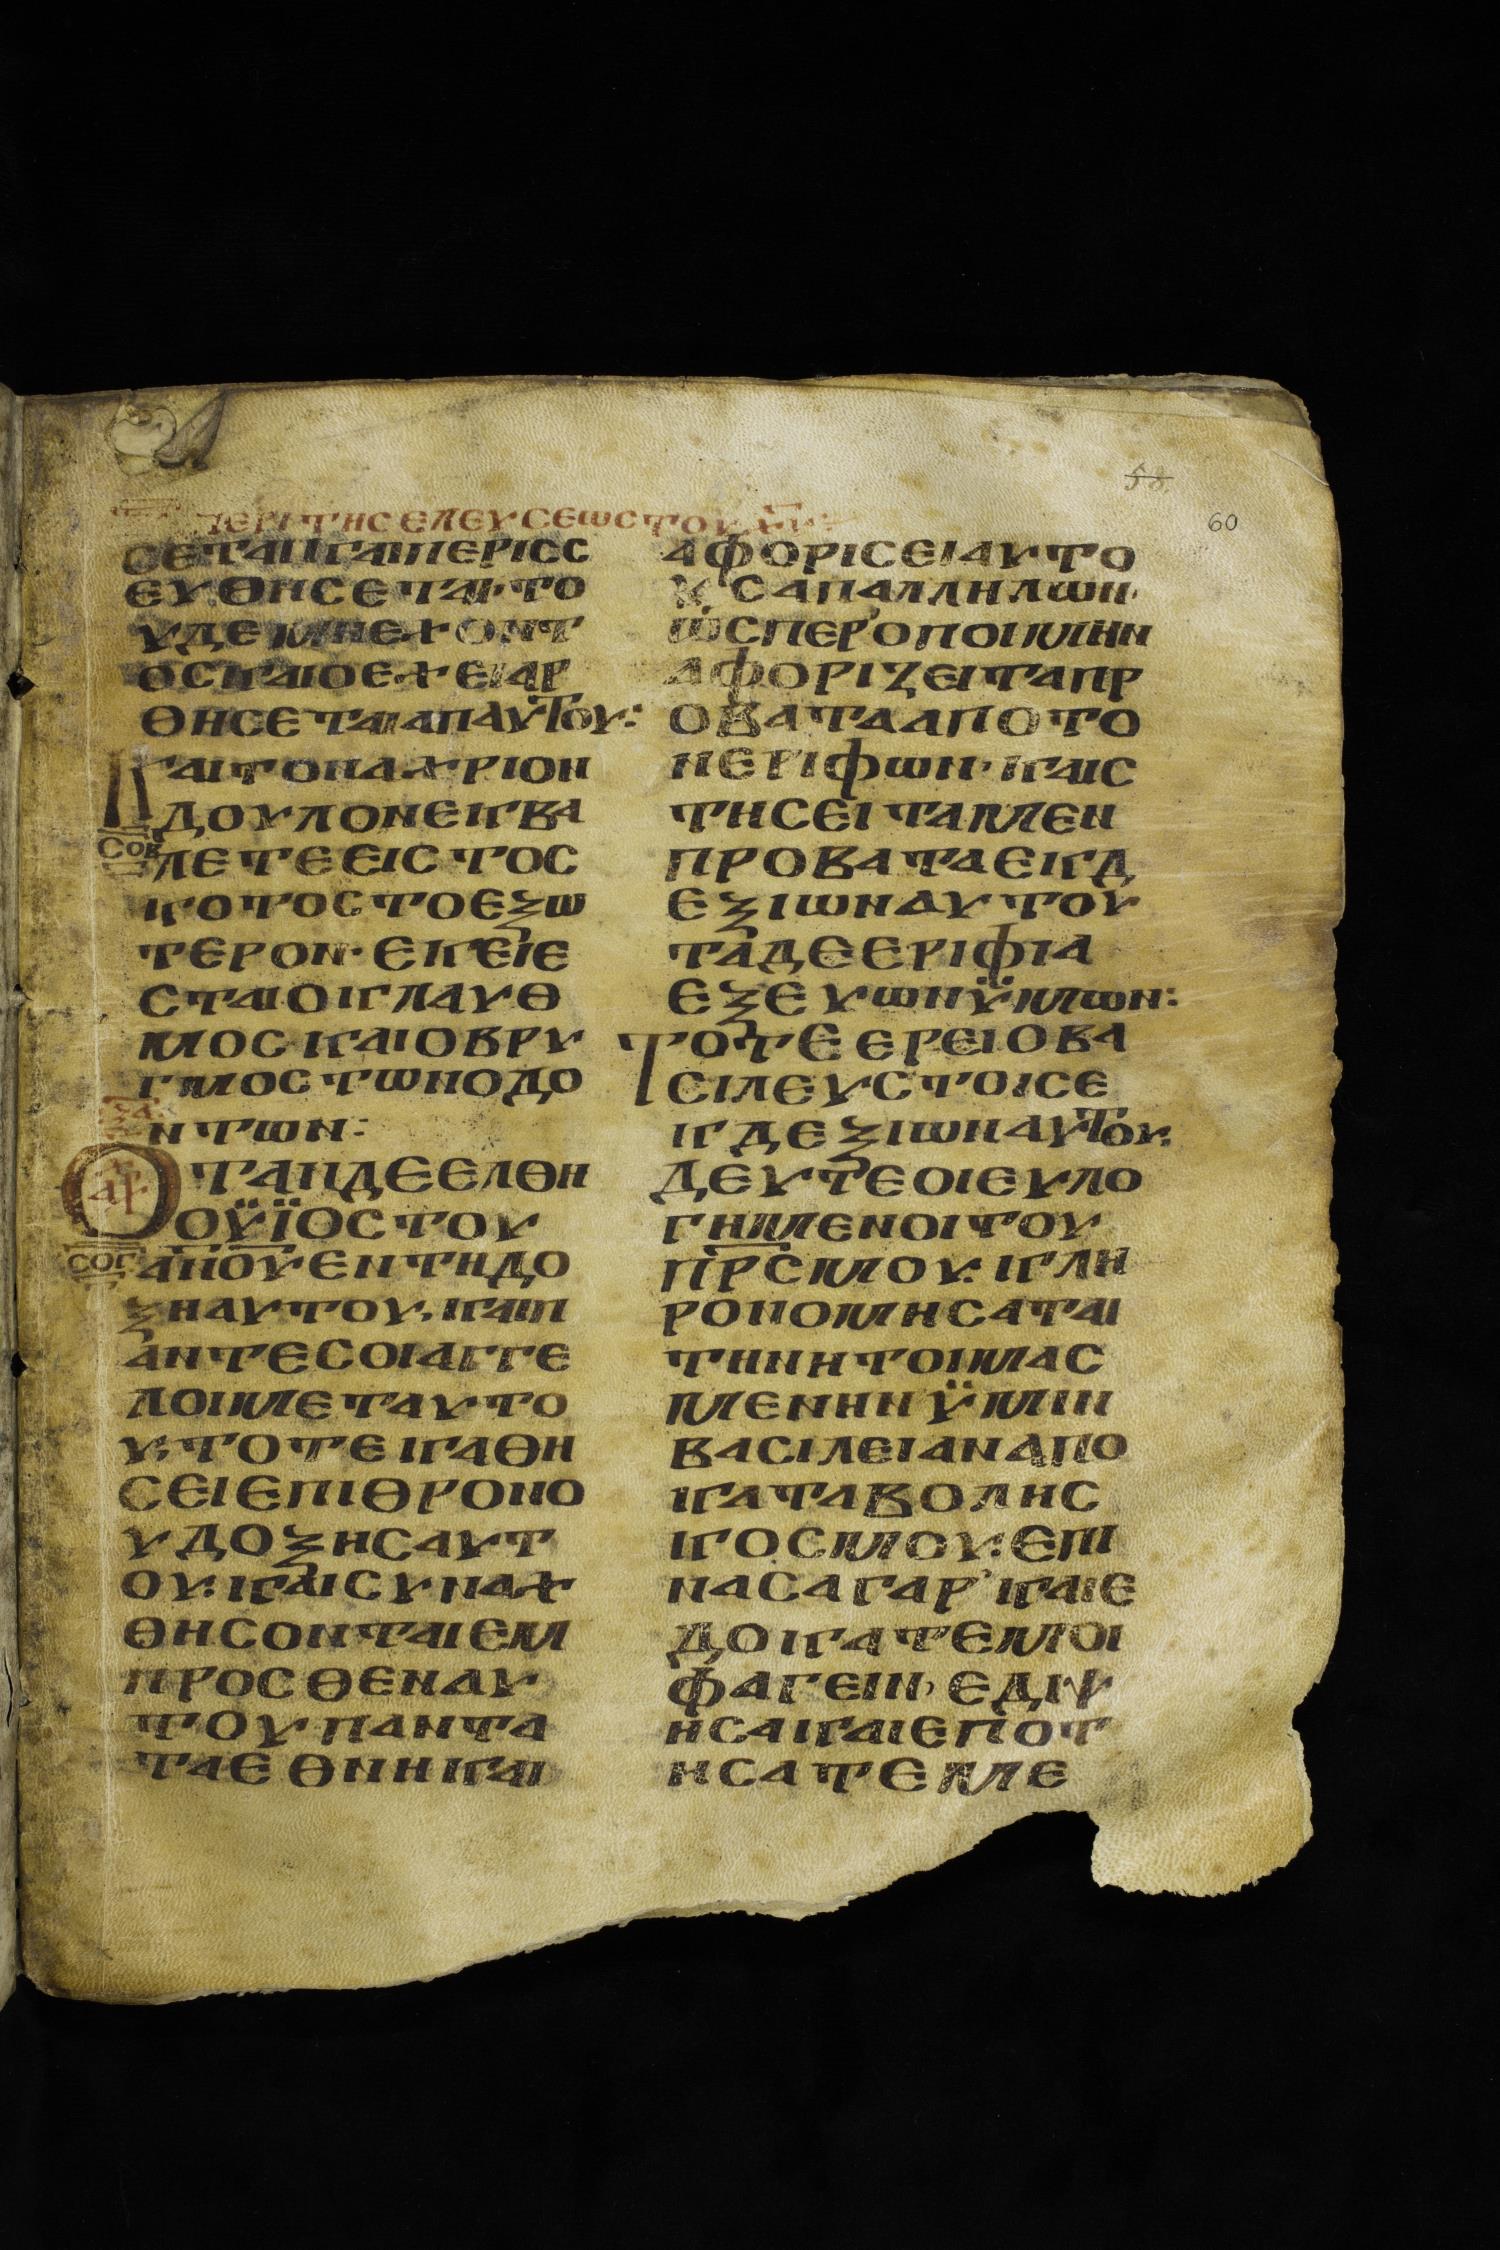 58
60
ΠΕΡΙ ΤΗΣ ΕΛΕΥΣΕΩΣ ΤΟΥ Χ̅Υ̅:
ΣΕΤΑΙ ΚΑΙ ΠΕΡΙΣΣ
ΕΥΘΗΣΕΤΑΙ· ΤΟ
Υ ΔΕ ΜΗ ΕΧΟΝΤ
ΟΣ ΚΑΙ Ο ΕΧΕΙ ΑΡ
ΘΗΣΕΤΑΙ ΑΠ ΑΥΤΟΥ:
ΚΑΙ ΤΟΝ ΑΧΡΙΟΝ
ΔΟΥΛΟΝ ΕΚΒΑ
ΣΟΒ
ΛΕΤΕ ΕΙΣ ΤΟ Σ
ΚΟΤΟΣ ΤΟ ΕΞΩ
ΤΕΡΟΝ· ΕΚΕΙ Ε
ΣΤΑΙ Ο ΚΛΑΥΘ
ΜΟΣ ΚΑΙ Ο ΒΡΥ
ΓΜΟΣ ΤΩΝ ΟΔΟ
ΞΑ
ΝΤΩΝ:
ΑΡΧ
ΟΤΑΝ ΔΕ ΕΛΘΗ
Ο Ϋ̈ΪΟΣ ΤΟΥ
ΣΟΓ
Α̅Π̅Ο̅Υ̅ ΕΝ ΤΗ ΔΟ
ΞΗ ΑΥΤΟΥ, ΚΑΙ Π
ΑΝΤΕΣ ΟΙ ΑΓΓΕ
ΛΟΙ ΜΕΤ ΑΥΤΟ
Υ, ΤΟΤΕ ΚΑΘΗ
ΣΕΙ ΕΠΙ ΘΡΟΝΟ
Υ ΔΟΞΗΣ ΑΥΤ
ΟΥ: ΚΑΙ ΣΥΝΑΧ
ΘΗΣΟΝΤΑΙ ΕΜ
ΠΡΟΣΘΕΝ ΑΥ
ΤΟΥ ΠΑΝΤΑ
ΤΑ ΕΘΝΗ ΚΑΙ
ΑΦΟΡΙΣΕΙ ΑΥΤΟ
ΥΣ ΑΠ ΑΛΛΗΛΩΝ·
ΩΣΠΕΡ Ο ΠΟΙΜΗΝ
ΑΦΟΡΙΖΕΙ ΤΑ ΠΡ
ΟΒΑΤΑ ΑΠΟ ΤΟ
Ν ΕΡΙΦΩΝ· ΚΑΙ Σ
ΤΗΣΕΙ ΤΑ ΜΕΝ
ΠΡΟΒΑΤΑ ΕΚ Δ
ΕΞΙΩΝ ΑΥΤΟΥ
ΤΑ ΔΕ ΕΡΙΦΙΑ
ΕΞ ΕΥΩΝΫΜΩΝ:
ΤΟΤΕ ΕΡΕΙ Ο ΒΑ
ΣΙΛΕΥΣ ΤΟΙΣ Ε
Κ ΔΕΞΙΩΝ ΑΥΤΟΥ.
ΔΕΥΤΕ ΟΙ ΕΥΛΟ
ΓΗΜΕΝΟΙ ΤΟΥ
Π̅Ρ̅Σ̅ ΜΟΥ: ΚΛΗ
ΡΟΝΟΜΗΣΑΤΑΙ
ΤΗΝ ΗΤΟΙΜΑΣ
ΜΕΝΗΝ ΫΜΙΝ
ΒΑΣΙΛΕΙΑΝ ΑΠΟ
ΚΑΤΑΒΟΛΗΣ
ΚΟΣΜΟΥ: ΕΠΙ
ΝΑΣΑ ΓΑΡ ΚΑΙ Ε
ΔΟΚΑΤΕ ΜΟΙ
ΦΑΓΕΙΝ· ΕΔΙΨ
ΗΣΑ ΚΑΙ ΕΠΟΤ
ΗΣΑΤΕ ΜΕ